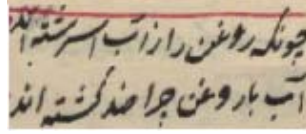 چونکه روغن را ز آب اسرشته‌اند
آب با روغن چرا ضد گشته‌اند